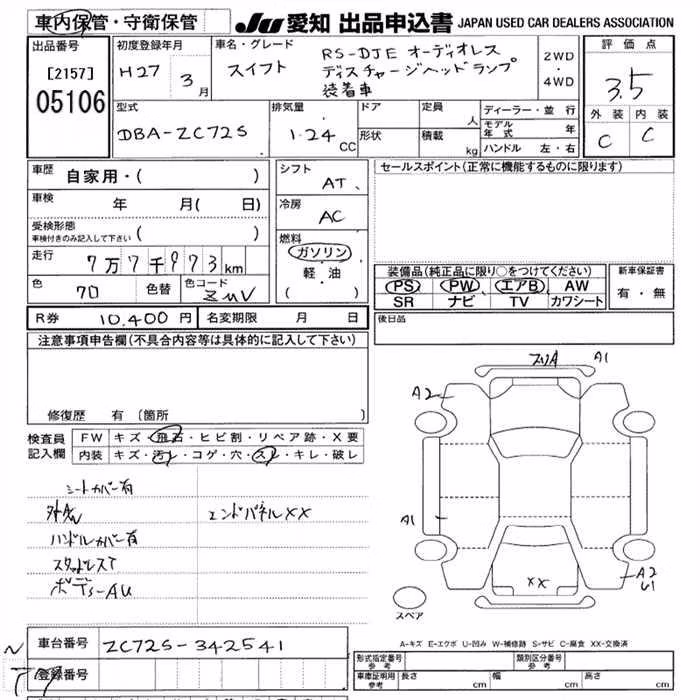 車内保管・守衛保管
JU 愛知 出品申込書 JAPAN USED CAR DEALERS ASSOCIATION
出品番号 初度登録年月 車名・グレード 評価点
[2157] H27 3月 スイフト RS-DJE オーディオレス 2WD
05106 ディスチャージヘッドランプ ・ 3.5
装着車 4WD
型式 排気量 ドア 定員 人 ディーラー・並行 外装 内装
DBA-ZC72S 1.24 CC 形状 積載 kg モデル年式 年 C C
ハンドル 左・右
車歴 自家用・( ) シフト AT、 セールスポイント(正常に機能するものに限ります)
車検 年 月( 日) 冷房 AC
受検形態
車検付きのみ記入して下さい ( ) 燃料
走行 7万7千973km ガソリン 装備品(純正品に限り○をつけてください) 新車保証書
色 70 色替 色コード ZMV 軽・油 PS PW エアB AW 有・無
( ) SR ナビ TV カワシート
R券 10,400円 名変期限 月 日 後日品
注意事項申告欄(不具合内容等は具体的に記入して下さい)
A1
A2
修復歴 有 (箇所
検査員 FW キズ・飛石・ヒビ割・リペア跡・X要
記入欄 内装 キズ・汚レ・コゲ・穴・スレ・キレ・破レ
シートカバー有
エンドパネルXX A1
ハンドルカバー有
スタッドレスT XX A2
U1
ボディーAU
スペア
車台番号 ZC72S-342541 A-キズ E-エクボ U-凹み W-補修跡 S-サビ C-腐食 XX-交換済
登録番号 形式指定番号参考 類別区分番号参考
車庫証明用参考 長さ cm 幅 cm 高さ cm